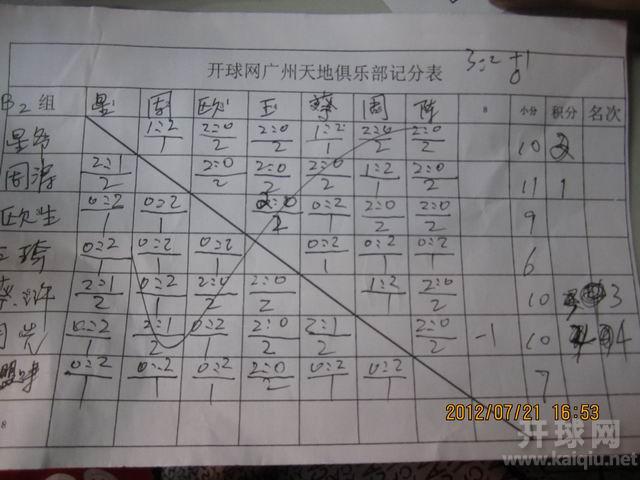 3:2 +1
0
开球网广州天地俱乐部记分表
B2组 星 周 欧 王 蔡 周 陈 8 小分 积分 名次
星爷 1:2/1 2:0/2 2:0/2 1:2/1 2:0/2 2:0/2 10 2
周涛 2:1/2 2:0/2 2:0/2 2:0/2 1:2/1 2:0/2 11 1
欧生 0:2/1 0:2/1 2:0/2 0:2/1 2:0/2 2:0/2 9
王 0:2/1 0:2/1 0:2/1 0:2/1 0:2/1 0:2/1 6
蔡 2:1/2 0:2/1 2:0/2 2:0/2 1:2/1 2:0/2 10 3
周 0:2/1 2:1/2 0:2/1 2:0/2 2:1/2 2:0/2 -1 10 4
0:2/1 0:2/1 0:2/1 2:0/2 0:2/1 0:2/1 7
8
2012/07/21 16:53
开球网
www.kaiqiu.net